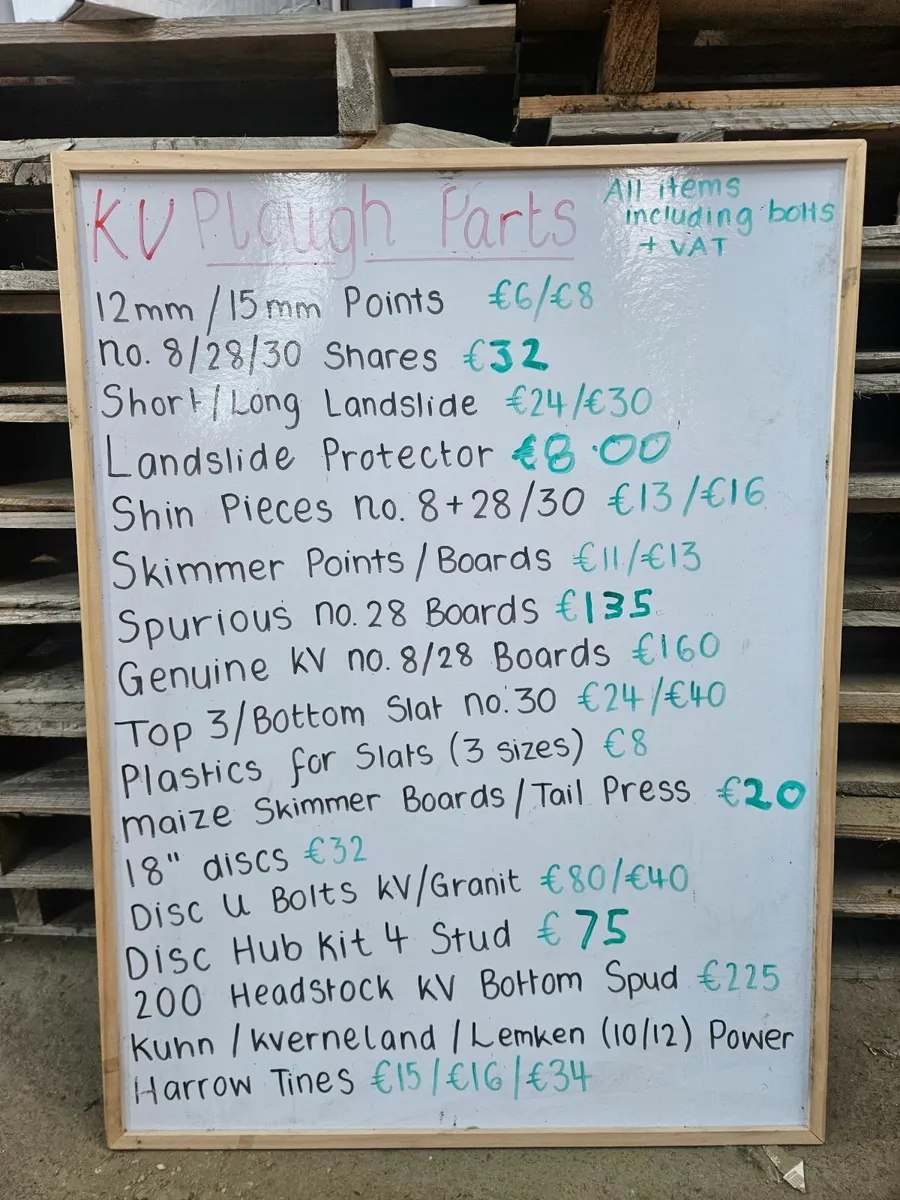 KV Plough Parts
All items
including bolts
+ VAT
12mm/15mm Points €6/€8
no. 8/28/30 Shares €32
Short/Long Landslide €24/€30
Landslide Protector €8.00
Shin Pieces no. 8+28/30 €13/€16
Skimmer Points/Boards €11/€13
Spurious no. 28 Boards €135
Genuine KV no. 8/28 Boards €160
Top 3/Bottom Slat no. 30 €24/€40
Plastics for Slats (3 sizes) €8
maize Skimmer Boards/Tail Press €20
18" discs €32
Disc U Bolts KV/Granit €80/€40
Disc Hub Kit 4 Stud €75
200 Headstock KV Bottom Spud €225
Kuhn/Kverneland/Lemken (10/12) Power
Harrow Tines €15/€16/€34